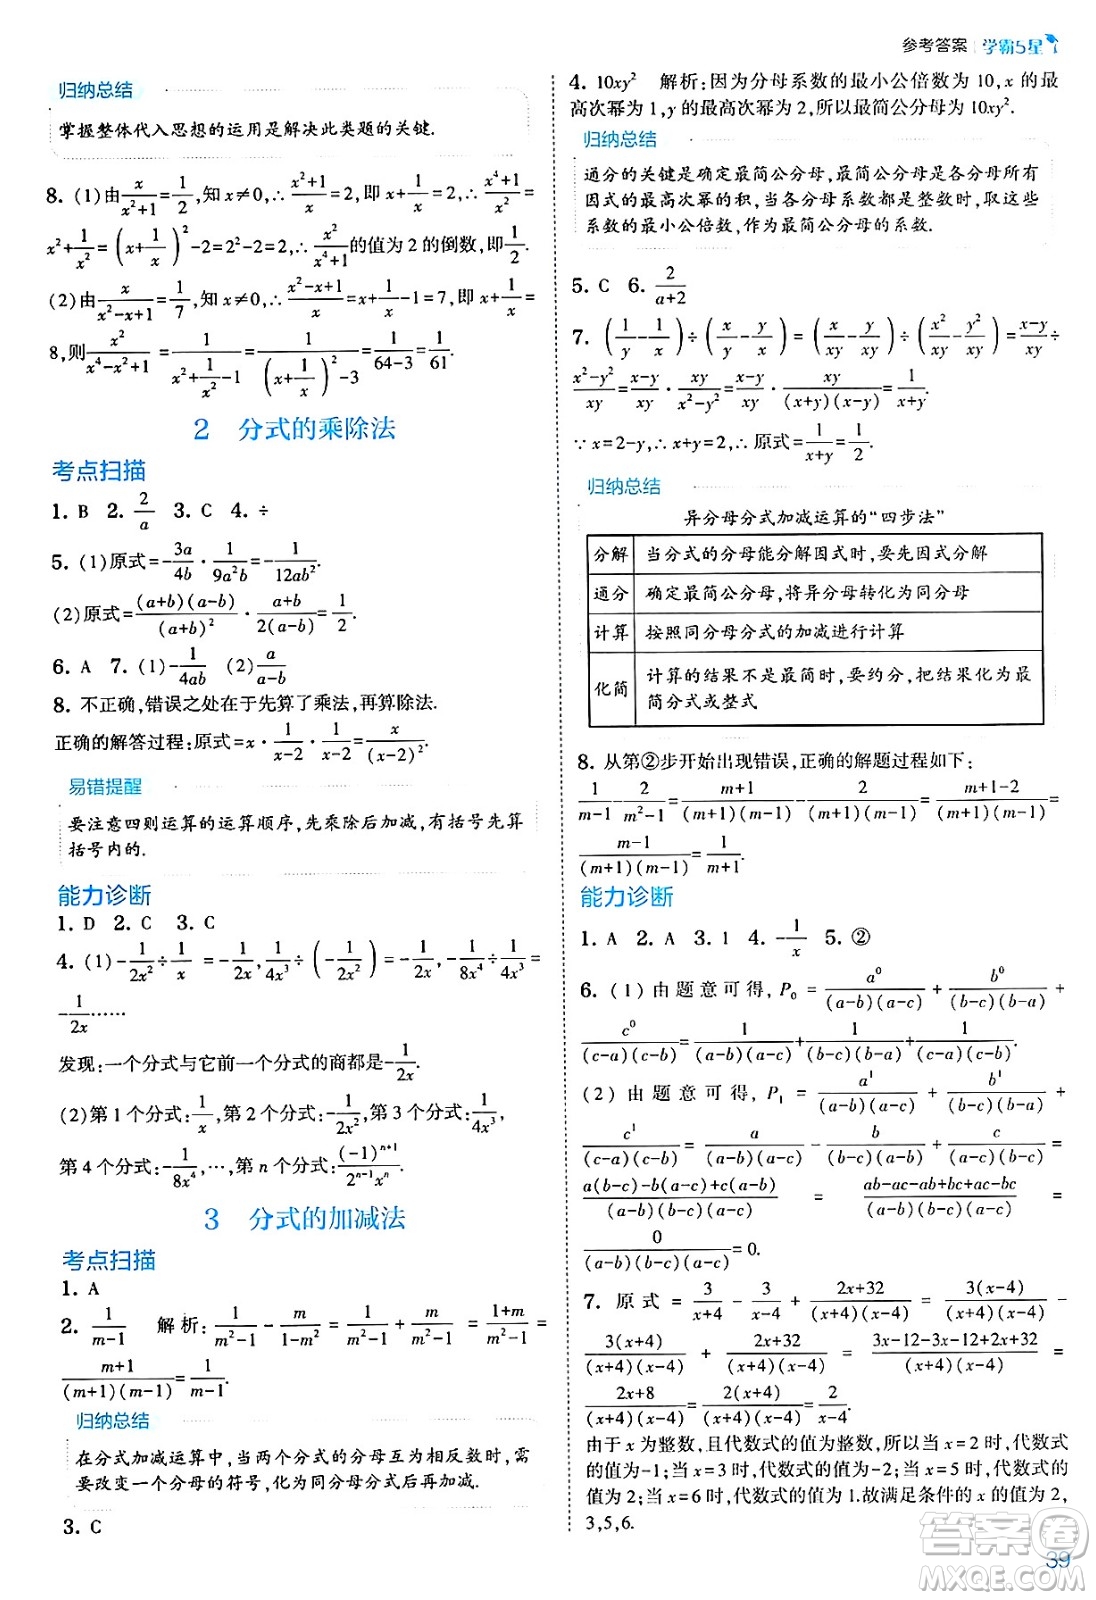 参考答案 学霸5星
归纳总结
掌握整体代入思想的运用是解决此类题的关键.
8. (1)由x/(x²+1)=1/2,知x≠0,∴(x²+1)/x=2,即x+1/x=2,∴(x⁴+1)/x²=
x²+1/x²=(x+1/x)²-2=2,∴x²/(x⁴+1)的值为2的倒数,即1/2.
(2)由x/(x²-x+1)=1/7,知x≠0,∴(x²-x+1)/x=x+1/x-1=7,即x+1/x=
8,则x²/(x⁴-x²+1)=1/(x²+1/x²-1)=1/((x+1/x)²-3)=1/(64-3)=1/61.
2 分式的乘除法
考点扫描
1. B 2. 2/a 3. C 4. ÷
5. (1)原式=-3a/4b·1/9a²b=-1/12ab².
(2)原式=(a+b)(a-b)/(a+b)²·(a+b)/2(a-b)=1/2.
6. A 7. (1)-1/4ab (2)a/(a-b)
8. 不正确,错误之处在于先算了乘法,再算除法.
正确的解答过程:原式=x·1/(x-2)·1/(x-2)=x/(x-2)².
易错提醒
要注意四则运算的运算顺序,先乘除后加减,有括号先算
括号内的.
能力诊断
1. D 2. C 3. C
4. (1)-1/2x²÷1/x=-1/2x,1/4x³÷(-1/2x²)=-1/2x,-1/8x⁴÷1/4x³=
-1/2x……
发现:一个分式与它前一个分式的商都是-1/2x.
(2)第1个分式:1/x,第2个分式:-1/2x²,第3个分式:1/4x³,
第4个分式:-1/8x⁴,…,第n个分式:(-1)ⁿ⁺¹/2ⁿ⁻¹xⁿ.
3 分式的加减法
考点扫描
1. A
2. 1/(m-1) 解析:1/(m²-1)-m/(1-m²)=1/(m²-1)+m/(m²-1)=(1+m)/(m²-1)=
(m+1)/(m+1)(m-1)=1/(m-1).
归纳总结
在分式加减运算中,当两个分式的分母互为相反数时,需
要改变一个分母的符号,化为同分母分式后再加减.
3. C
4. 10xy² 解析:因为分母系数的最小公倍数为10,x的最
高次幂为1,y的最高次幂为2,所以最简公分母为10xy².
归纳总结
通分的关键是确定最简公分母,最简公分母是各分母所有
因式的最高次幂的积,当各分母系数都是整数时,取这些
系数的最小公倍数,作为最简公分母的系数.
5. C 6. 2/(a+2)
7. (1/y-1/x)÷(x/y-y/x)=(x/xy-y/xy)÷(x²/xy-y²/xy)=(x-y)/xy÷
(x²-y²)/xy=(x-y)/xy·xy/(x²-y²)=(x-y)/xy·xy/(x+y)(x-y)=1/(x+y).
∵x=2-y,∴x+y=2,∴原式=1/(x+y)=1/2.
归纳总结
异分母分式加减运算的“四步法”
分解 当分式的分母能分解因式时,要先因式分解
通分 确定最简公分母,将异分母转化为同分母
计算 按照同分母分式的加减进行计算
化简 计算的结果不是最简时,要约分,把结果化为最
简分式或整式
8. 从第②步开始出现错误,正确的解题过程如下:
1/(m-1)-2/(m²-1)=(m+1)/(m+1)(m-1)-2/(m+1)(m-1)=(m+1-2)/(m+1)(m-1)=
(m-1)/(m+1)(m-1)=1/(m+1).
能力诊断
1. A 2. A 3. 1 4. -1/x 5. ②
6. (1)由题意可得,P₀=a⁰/(a-b)(a-c)+b⁰/(b-c)(b-a)+
c⁰/(c-a)(c-b)=1/(a-b)(a-c)+1/(b-c)(b-a)+1/(c-a)(c-b).
(2)由题意可得,P₁=a¹/(a-b)(a-c)+b¹/(b-c)(b-a)+
c¹/(c-a)(c-b)=a/(a-b)(a-c)-b/(a-b)(b-c)+c/(a-c)(b-c)=
a(b-c)-b(a-c)+c(a-b)/(a-b)(a-c)(b-c)=ab-ac-ab+bc+ac-bc/(a-b)(a-c)(b-c)=
0/(a-b)(b-c)(a-c)=0.
7. 原式=3/(x+4)-3/(x-4)+(2x+32)/(x+4)(x-4)=3(x-4)/(x+4)(x-4)-
3(x+4)/(x+4)(x-4)+(2x+32)/(x+4)(x-4)=(3x-12-3x-12+2x+32)/(x+4)(x-4)=
(2x+8)/(x+4)(x-4)=2(x+4)/(x+4)(x-4)=2/(x-4).
由于x为整数,且代数式的值为整数,所以当x=2时,代数式
的值为-1;当x=3时,代数式的值为-2;当x=5时,代数式的
值为2;当x=6时,代数式的值为1.故满足条件的x的值为2,
3,5,6.
答案圈
MXQE.COM
39